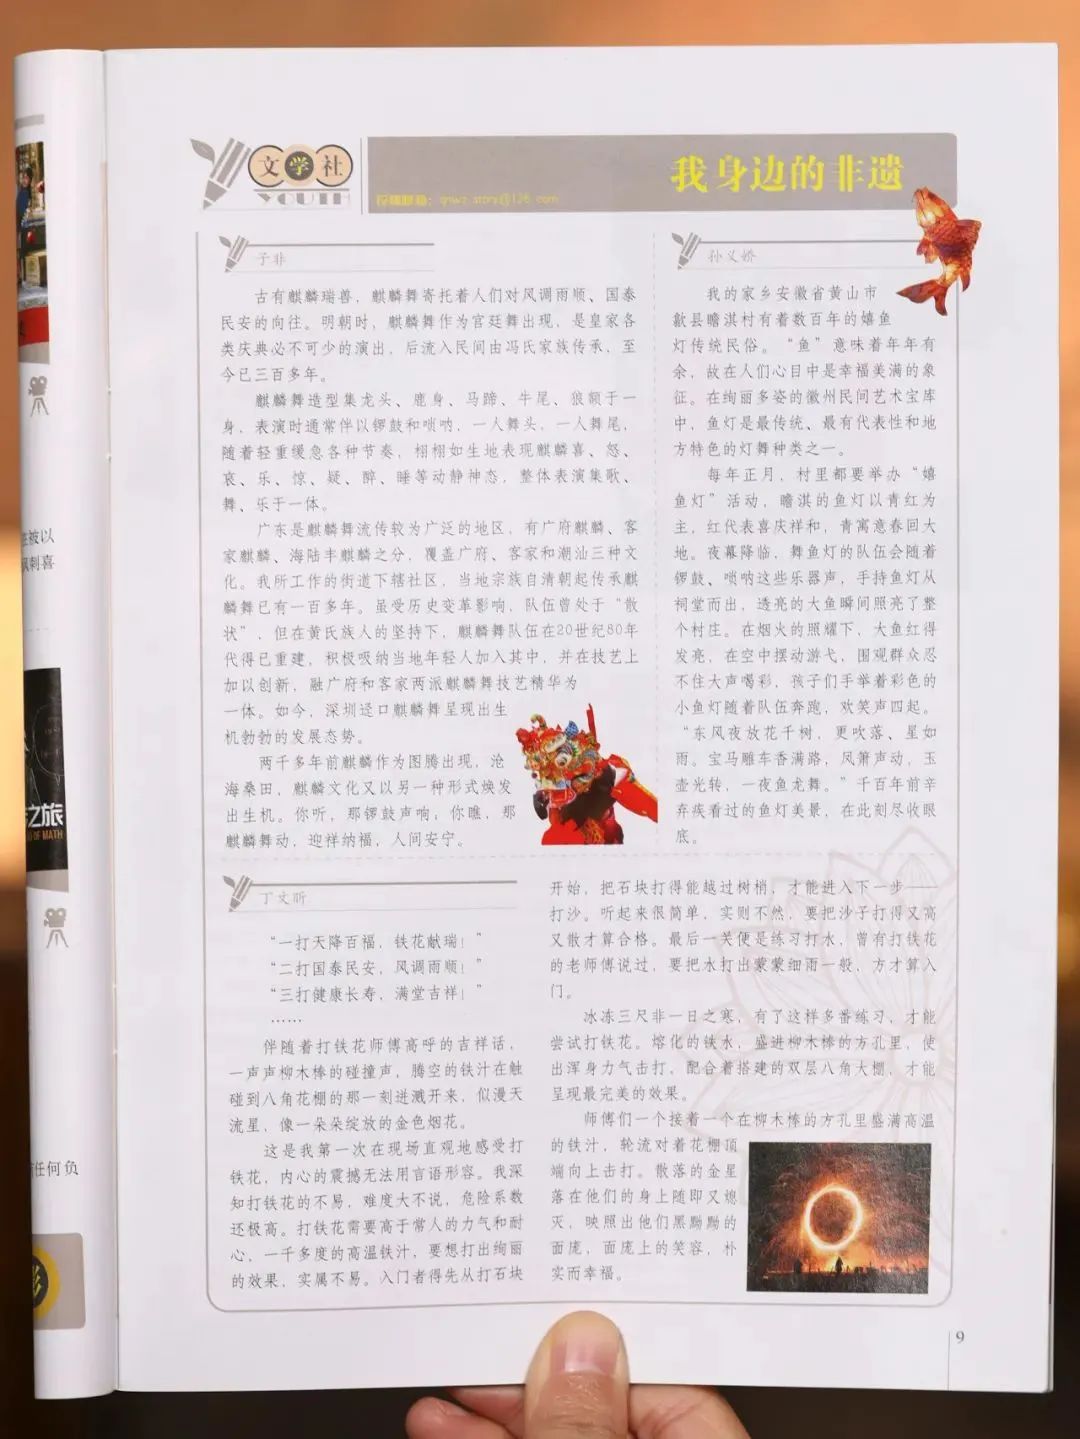 文学社
YOUTH
我身边的非遗
子非
古有麒麟瑞兽，麒麟舞寄托着人们对风调雨顺、国泰
民安的向往。明朝时，麒麟舞作为宫廷舞出现，是皇家各
类庆典必不可少的演出，后流入民间由冯氏家族传承，至
今已三百多年。
麒麟舞造型集龙头、鹿身、马蹄、牛尾、狼额于一
身，表演时通常伴以锣鼓和唢呐，一人舞头，一人舞尾，
随着轻重缓急各种节奏，栩栩如生地表现麒麟喜、怒、
哀、乐、惊、疑、醉、睡等动静神态，整体表演集歌、
舞、乐于一体。
广东是麒麟舞流传较为广泛的地区，有广府麒麟、客
家麒麟、海陆丰麒麟之分，覆盖广府、客家和潮汕三种文
化。我所工作的街道下辖社区，当地宗族自清朝起传承麒
麟舞已有一百多年。虽受历史变革影响，队伍曾处于“散
状”，但在黄氏族人的坚持下，麒麟舞队伍在20世纪80年
代得已重建，积极吸纳当地年轻人加入其中，并在技艺上
加以创新，融广府和客家两派麒麟舞技艺精华为
一体。如今，深圳迳口麒麟舞呈现出生
机勃勃的发展态势。
两千多年前麒麟作为图腾出现，沧
海桑田，麒麟文化又以另一种形式焕发
出生机。你听，那锣鼓声响；你瞧，那
麒麟舞动，迎祥纳福，人间安宁。
孙义娇
我的家乡安徽省黄山市
歙县瞻淇村有着数百年的嬉鱼
灯传统民俗。“鱼”意味着年年有
余，故在人们心目中是幸福美满的象
征。在绚丽多姿的徽州民间艺术宝库
中，鱼灯是最传统、最有代表性和地
方特色的灯舞种类之一。
每年正月，村里都要举办“嬉
鱼灯”活动，瞻淇的鱼灯以青红为
主，红代表喜庆祥和，青寓意春回大
地。夜幕降临，舞鱼灯的队伍会随着
锣鼓、唢呐这些乐器声，手持鱼灯从
祠堂而出，透亮的大鱼瞬间照亮了整
个村庄。在烟火的照耀下，大鱼红得
发亮，在空中摆动游弋，围观群众忍
不住大声喝彩，孩子们手举着彩色的
小鱼灯随着队伍奔跑，欢笑声四起。
“东风夜放花千树，更吹落、星如
雨。宝马雕车香满路，凤箫声动，玉
壶光转，一夜鱼龙舞。”千百年前辛
弃疾看过的鱼灯美景，在此刻尽收眼
底。
丁文昕
“一打天降百福，铁花献瑞！”
“二打国泰民安，风调雨顺！”
“三打健康长寿，满堂吉祥！”
……
伴随着打铁花师傅高呼的吉祥话，
一声声柳木棒的碰撞声，腾空的铁汁在触
碰到八角花棚的那一刻迸溅开来，似漫天
流星，像一朵朵绽放的金色烟花。
这是我第一次在现场直观地感受打
铁花，内心的震撼无法用言语形容。我深
知打铁花的不易，难度大不说，危险系数
还极高。打铁花需要高于常人的力气和耐
心，一千多度的高温铁汁，要想打出绚丽
的效果，实属不易。入门者得先从打石块
开始，把石块打得能越过树梢，才能进入下一步——
打沙。听起来很简单，实则不然，要把沙子打得又高
又散才算合格。最后一关便是练习打水，曾有打铁花
的老师傅说过，要把水打出蒙蒙细雨一般，方才算入
门。
冰冻三尺非一日之寒，有了这样多番练习，才能
尝试打铁花。熔化的铁水，盛进柳木棒的方孔里，使
出浑身力气击打，配合着搭建的双层八角大棚，才能
呈现最完美的效果。
师傅们一个接着一个在柳木棒的方孔里盛满高温
的铁汁，轮流对着花棚顶
端向上击打。散落的金星
落在他们的身上随即又熄
灭，映照出他们黑黝黝的
面庞，面庞上的笑容，朴
实而幸福。
9
在被以
讽刺喜
之旅
OF MATH
任何负